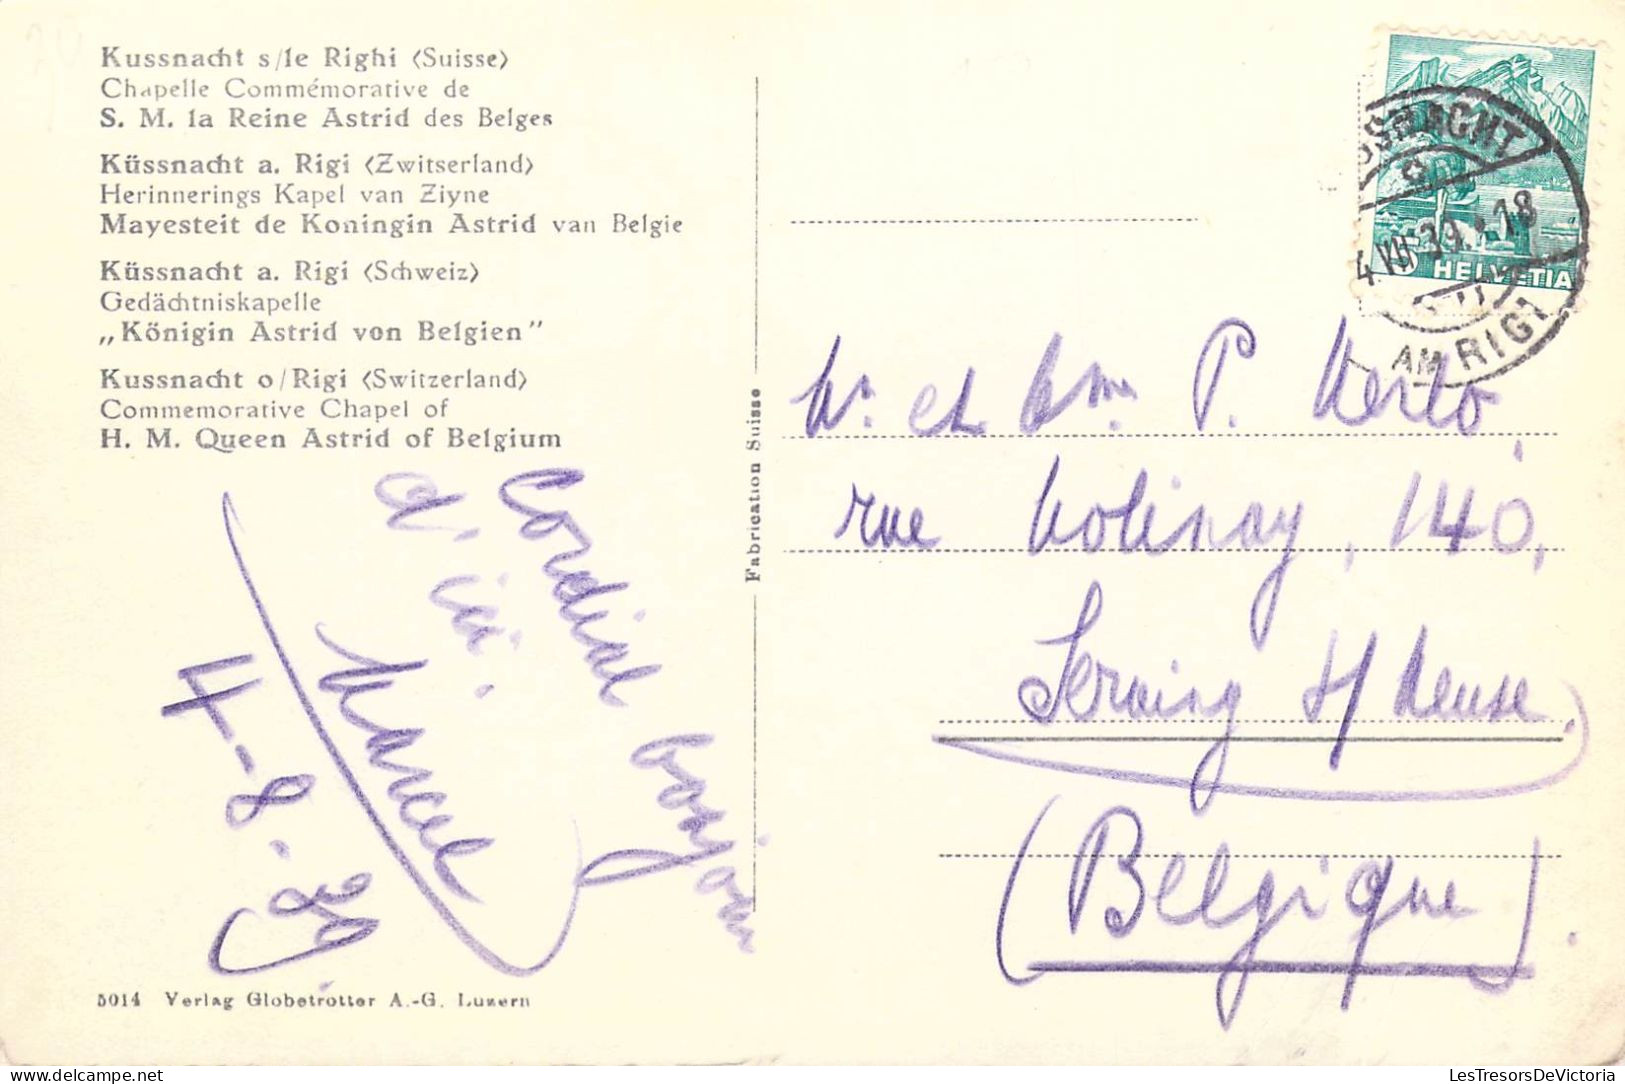 Kussnacht s/le Righi (Suisse)
Chapelle Commémorative de
S. M. la Reine Astrid des Belges
Küssnacht a. Rigi (Zwitserland)
Herinnerings Kapel van Ziyne
Mayesteit de Koningin Astrid van Belgie
Küssnacht a. Rigi (Schweiz)
Gedächtniskapelle
„Königin Astrid von Belgien”
Kussnacht o/Rigi (Switzerland)
Commemorative Chapel of
H. M. Queen Astrid of Belgium
Cordial bonjour
d'ici.
Marcel
4-8-39
5014 Verlag Globetrotter A.-G. Luzern
Fabrication Suisse
HELVETIA
AM RIGI
Mr. et Mme. P.
rue 140,
Seraing s/ Meuse.
(Belgique).
LesTresorsDeVictoria